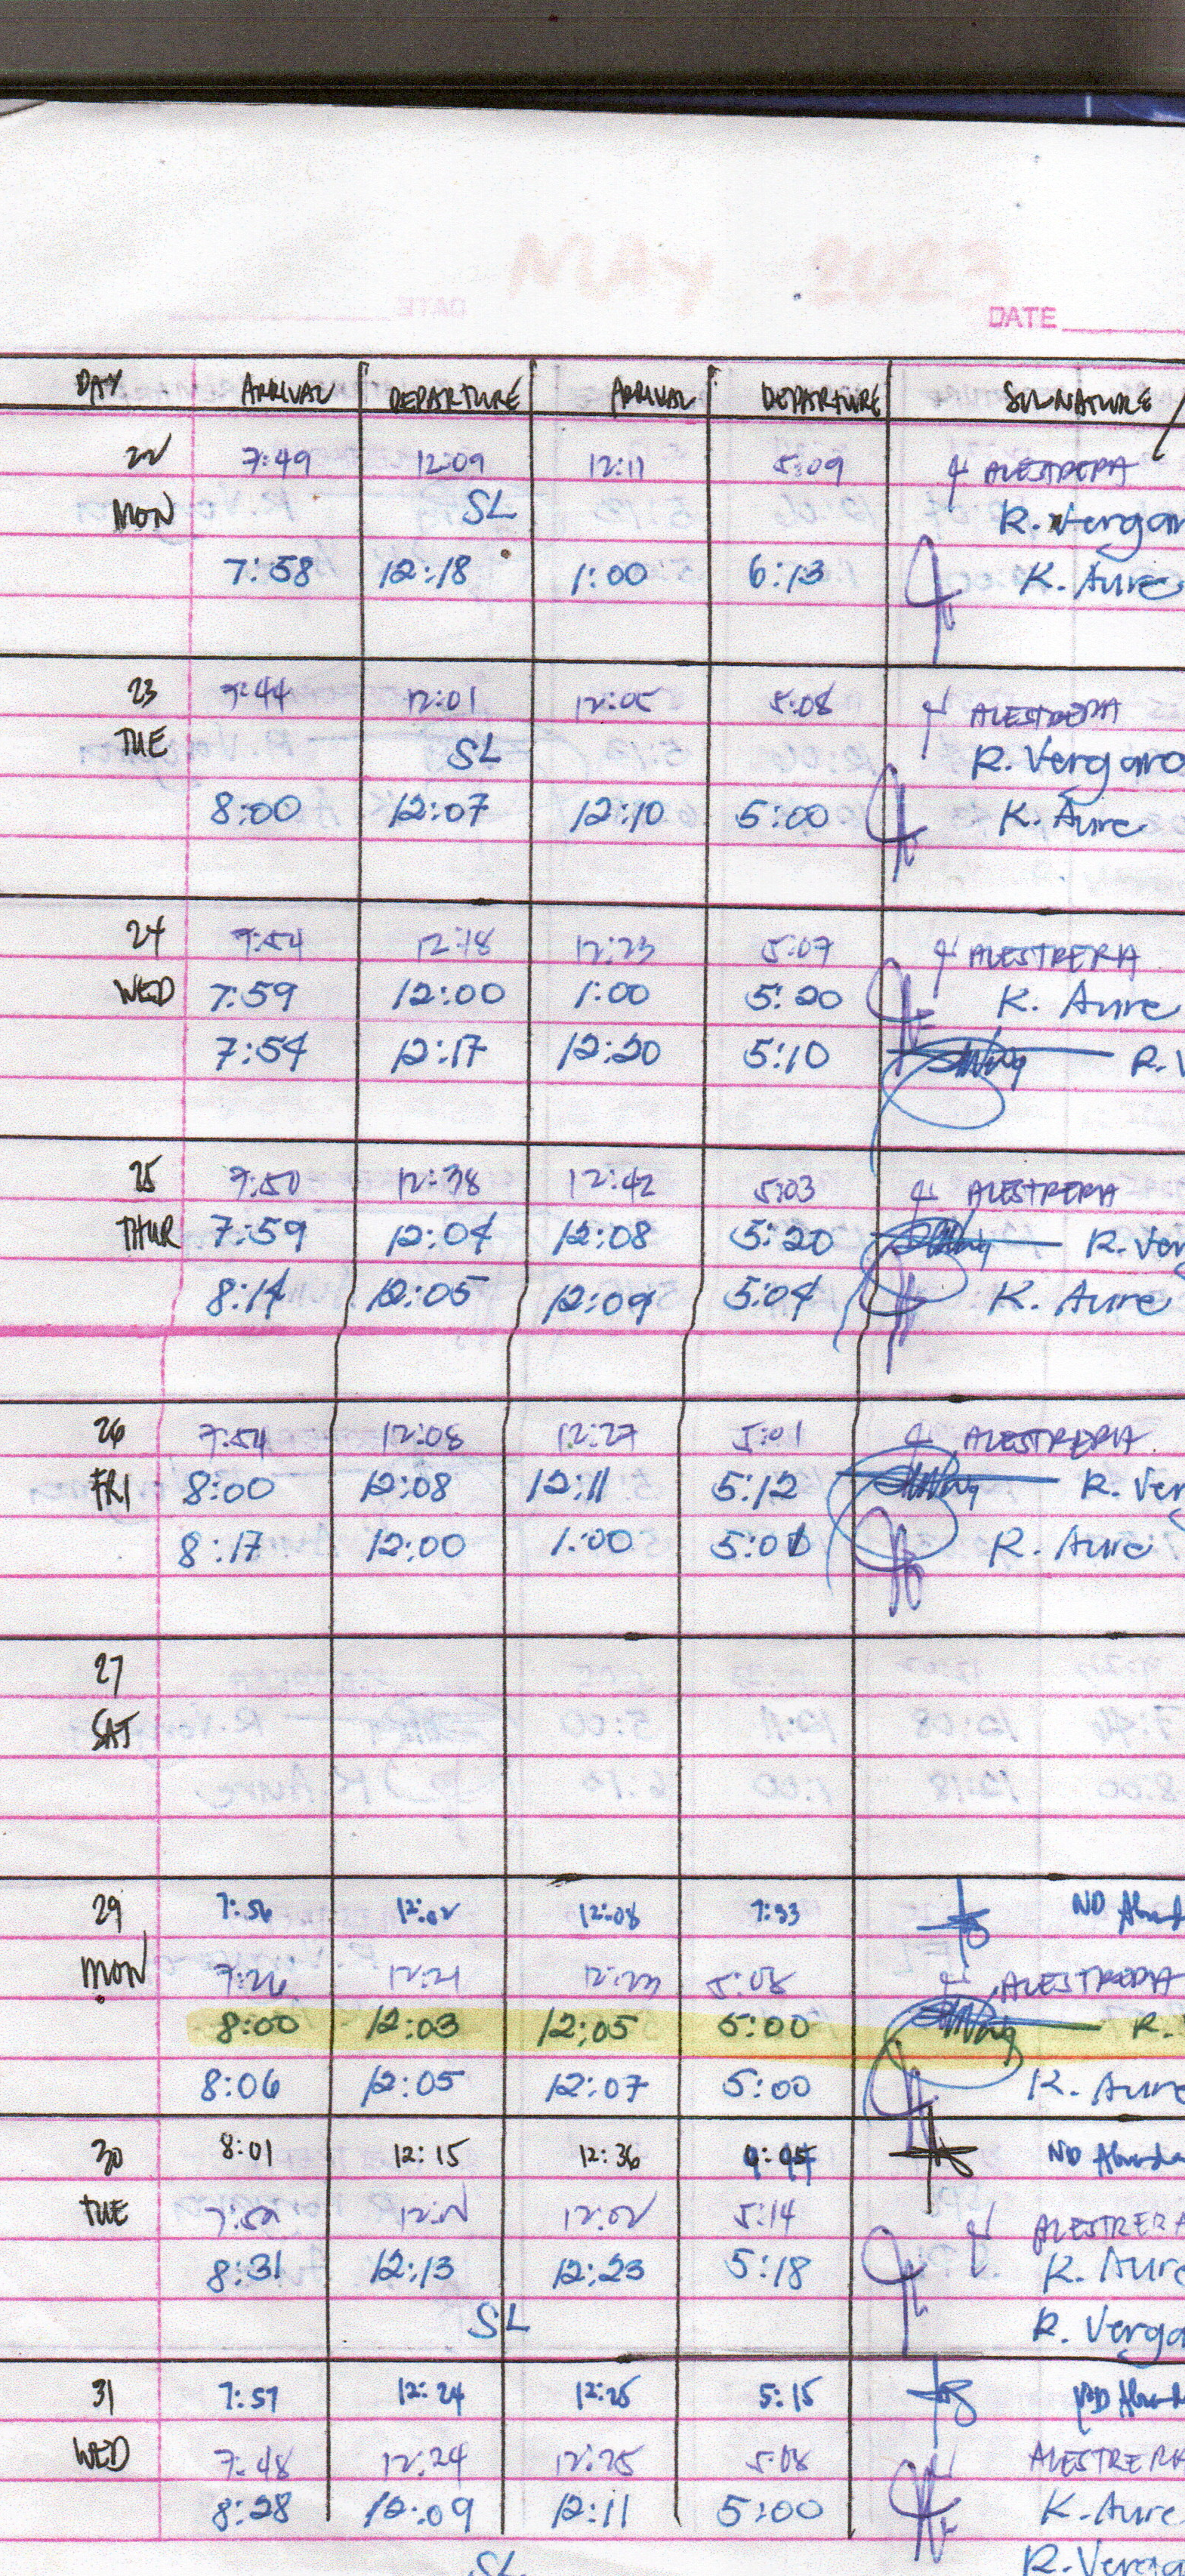 MAY 2023
DATE
DAY ARRIVAL DEPARTURE ARRIVAL DEPARTURE SIGNATURE
22 7:49 12:09 12:11 5:09 ALESTRERIA
MON SL R. Vergar
7:58 12:18 1:00 6:13 K. Aure
23 7:44 12:01 12:05 5:08 ALESTRERIA
TUE SL R. Vergara
8:00 12:07 12:10 5:00 K. Aure
24 7:54 12:18 12:23 5:07 ALESTRERIA
WED 7:59 12:00 1:00 5:20 K. Aure
7:54 12:17 12:20 5:10 R. V
25 7:50 12:38 12:42 5:03 ALESTRERIA
THUR 7:59 12:04 12:08 5:20 R. Ver
8:14 12:05 12:09 5:04 K. Aure
26 7:54 12:08 12:27 5:01 ALESTRERIA
FRI 8:00 12:08 12:11 5:12 R. Ver
8:17 12:00 1:00 5:01 K. Aure
27
SAT
29 7:56 12:02 12:08 7:33 ND
MON 7:26 12:21 12:23 5:08 ALESTRERIA
8:00 12:03 12:05 5:00 R.
8:06 12:05 12:07 5:00 K. Aure
30 8:01 12:15 12:36 ND
TUE 12:02 5:14 ALESTRERIA
8:31 12:13 12:23 5:18 K. Aure
SL R. Verga
31 7:57 12:24 12:25 5:15
WED 7:48 12:24 12:25 5:08 ALESTRERIA
8:28 12:09 12:11 5:00 K. Aure
SL R. Verga